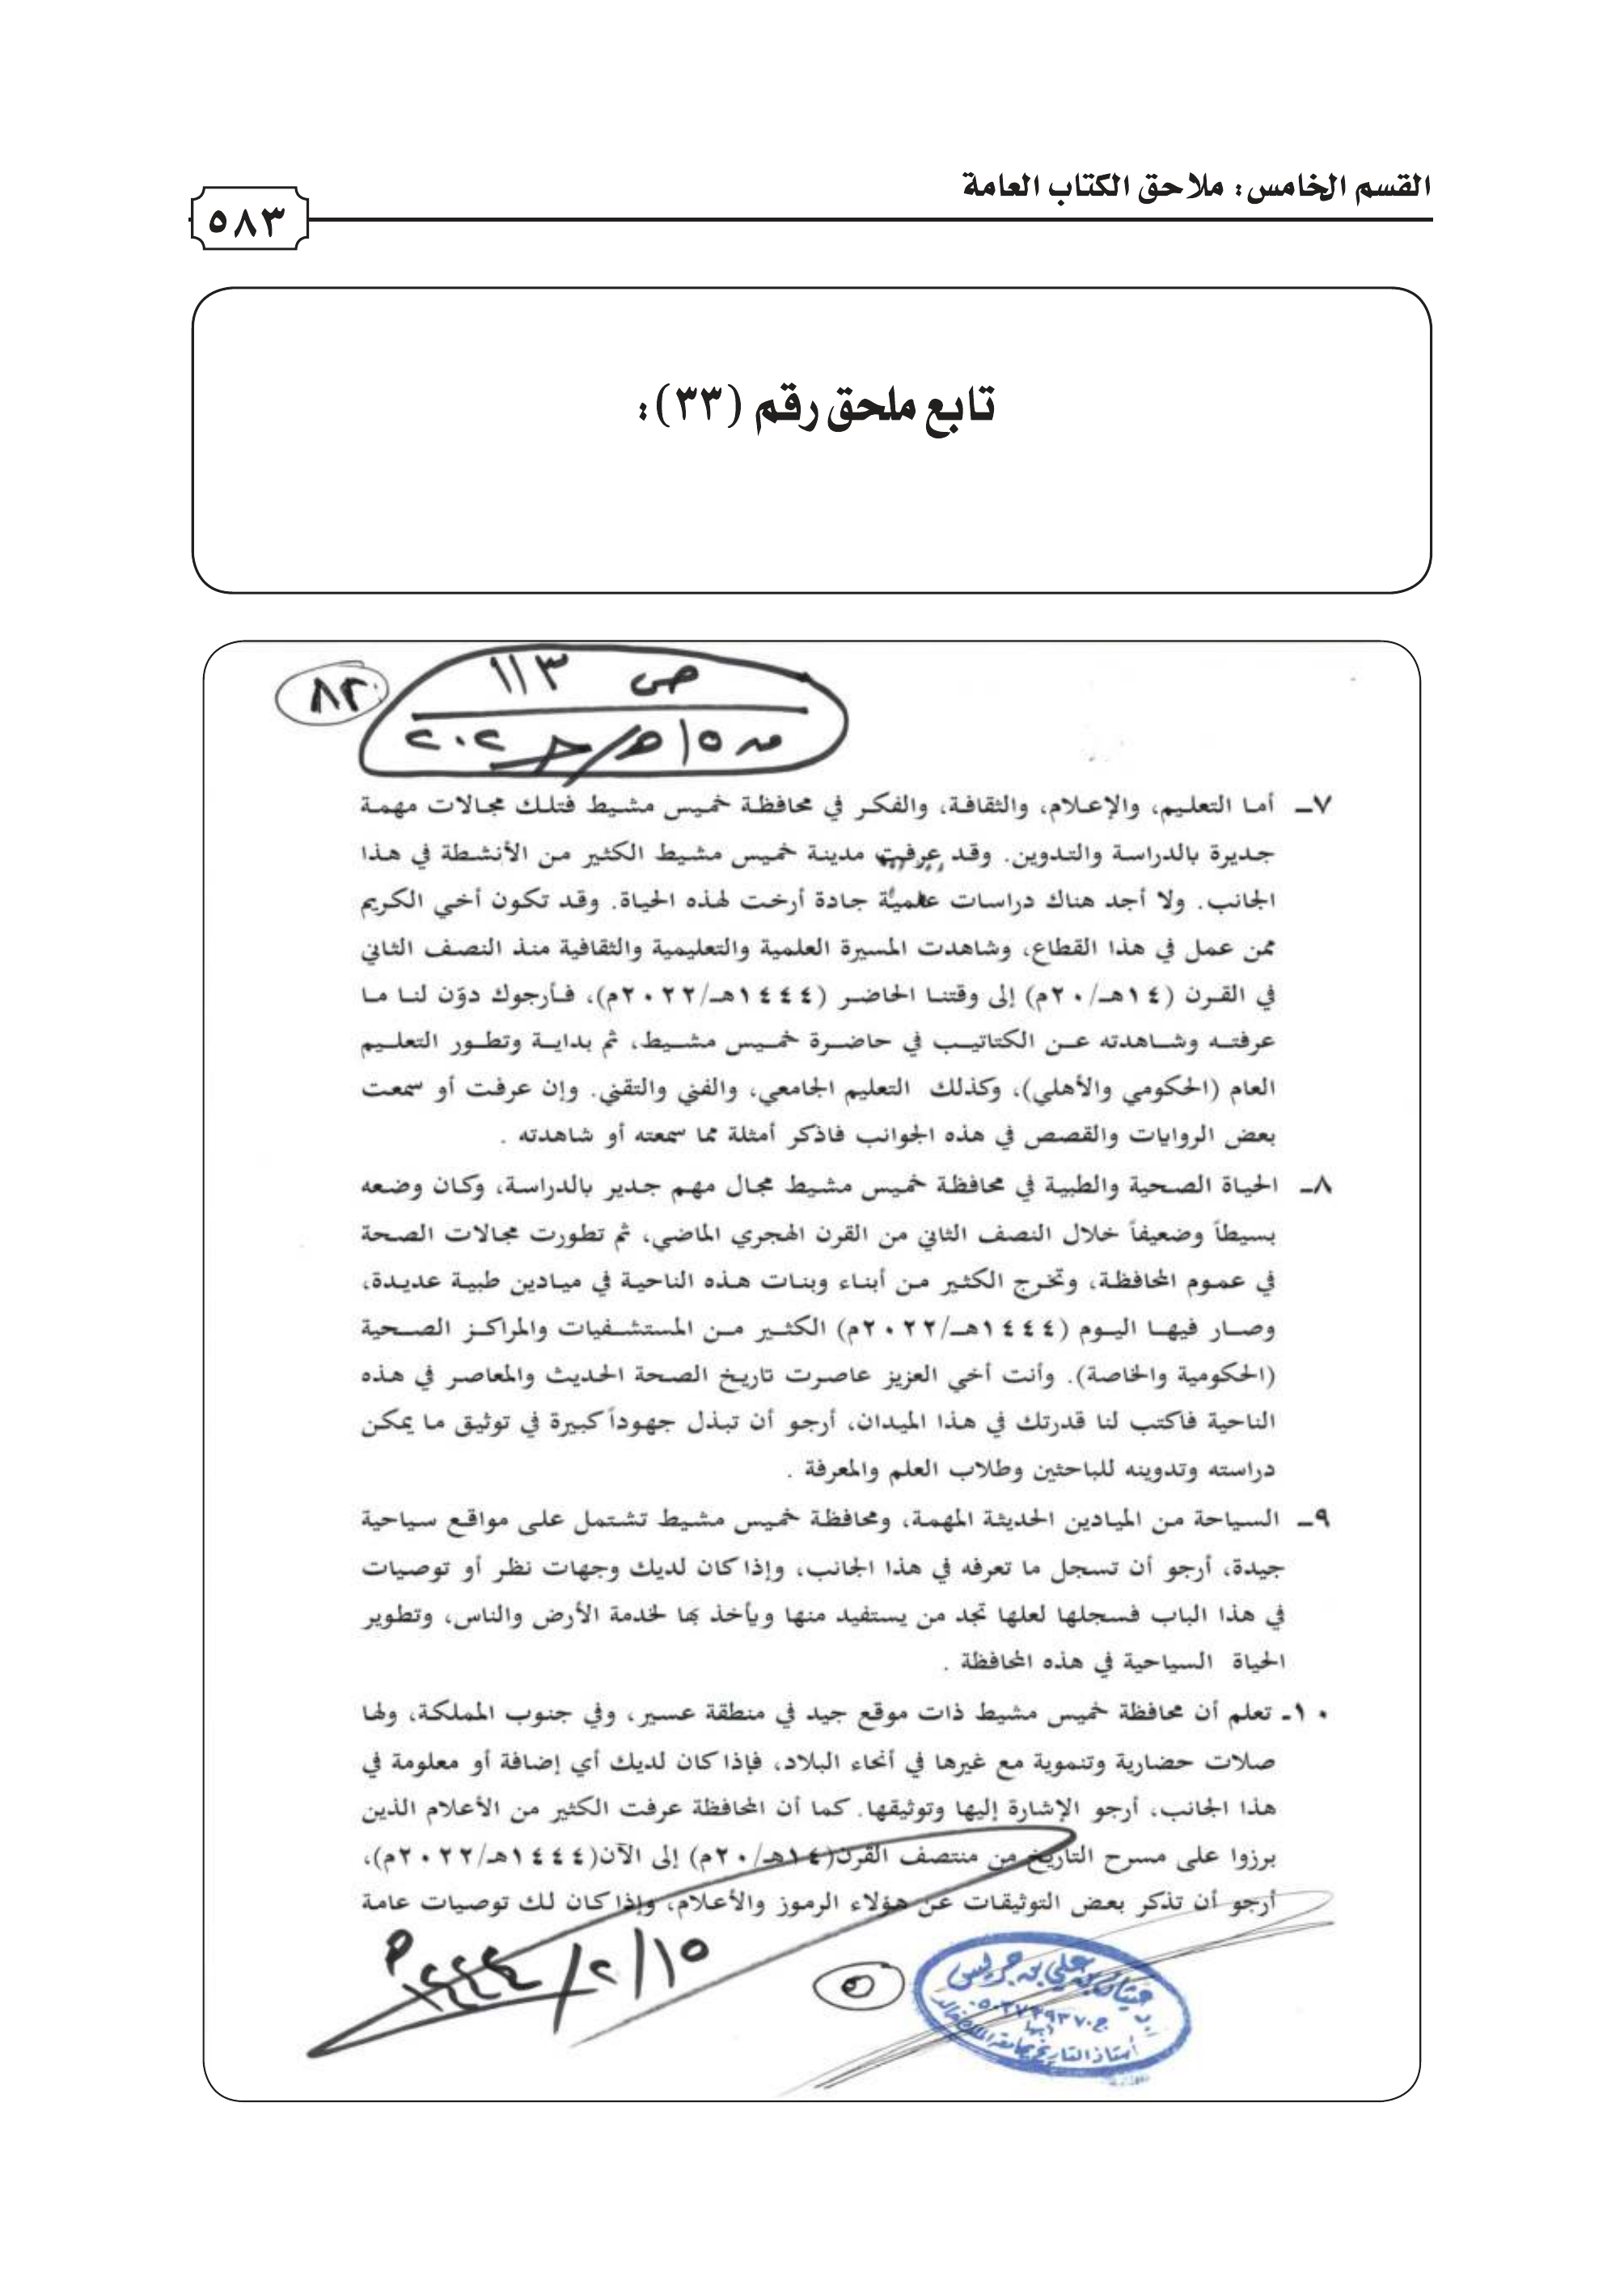 القسم الخامس: ملاحق الكتاب العامة
٥٨٣
تابع ملحق رقم (٣٣):
ص ١١٣
٨٢
٧ـ أما التعليم، والإعلام، والثقافة، والفكر في محافظة خميس مشيط فتلك مجالات مهمة
جديرة بالدراسة والتدوين. وقد عرفت مدينة خميس مشيط الكثير من الأنشطة في هذا
الجانب. ولا أجد هناك دراسات علمية جادة أرخت لهذه الحياة. وقد تكون أخي الكريم
ممن عمل في هذا القطاع، وشاهدت المسيرة العلمية والتعليمية والثقافية منذ النصف الثاني
في القرن (١٤هـ/٢٠م) إلى وقتنا الحاضر (١٤٤٤هـ/٢٠٢٢م)، فأرجوك دوّن لنا ما
عرفته وشاهدته عن الكتاتيب في حاضرة خميس مشيط، ثم بداية وتطور التعليم
العام (الحكومي والأهلي)، وكذلك التعليم الجامعي، والفني والتقني. وإن عرفت أو سمعت
بعض الروايات والقصص في هذه الجوانب فاذكر أمثلة مما سمعته أو شاهدته .
٨ـ الحياة الصحية والطبية في محافظة خميس مشيط مجال مهم جدير بالدراسة، وكان وضعه
بسيطاً وضعيفاً خلال النصف الثاني من القرن الهجري الماضي، ثم تطورت مجالات الصحة
في عموم المحافظة، وتخرج الكثير من أبناء وبنات هذه الناحية في ميادين طبية عديدة،
وصار فيها اليوم (١٤٤٤هـ/٢٠٢٢م) الكثير من المستشفيات والمراكز الصحية
(الحكومية والخاصة). وأنت أخي العزيز عاصرت تاريخ الصحة الحديث والمعاصر في هذه
الناحية فاكتب لنا قدرتك في هذا الميدان، أرجو أن تبذل جهوداً كبيرة في توثيق ما يمكن
دراسته وتدوينه للباحثين وطلاب العلم والمعرفة .
٩ـ السياحة من الميادين الحديثة المهمة، ومحافظة خميس مشيط تشتمل على مواقع سياحية
جيدة، أرجو أن تسجل ما تعرفه في هذا الجانب، وإذا كان لديك وجهات نظر أو توصيات
في هذا الباب فسجلها لعلها تجد من يستفيد منها ويأخذ بها لخدمة الأرض والناس، وتطوير
الحياة السياحية في هذه المحافظة .
١٠ـ تعلم أن محافظة خميس مشيط ذات موقع جيد في منطقة عسير، وفي جنوب المملكة، ولها
صلات حضارية وتنموية مع غيرها في أنحاء البلاد، فإذا كان لديك أي إضافة أو معلومة في
هذا الجانب، أرجو الإشارة إليها وتوثيقها. كما أن المحافظة عرفت الكثير من الأعلام الذين
برزوا على مسرح التاريخ من منتصف القرن(١٤هـ/٢٠م) إلى الآن(١٤٤٤هـ/٢٠٢٢م)،
أرجو أن تذكر بعض التوثيقات عن هؤلاء الرموز والأعلام، وإذا كان لك توصيات عامة
٥
أستاذ التاريخ بجامعة الملك خالد